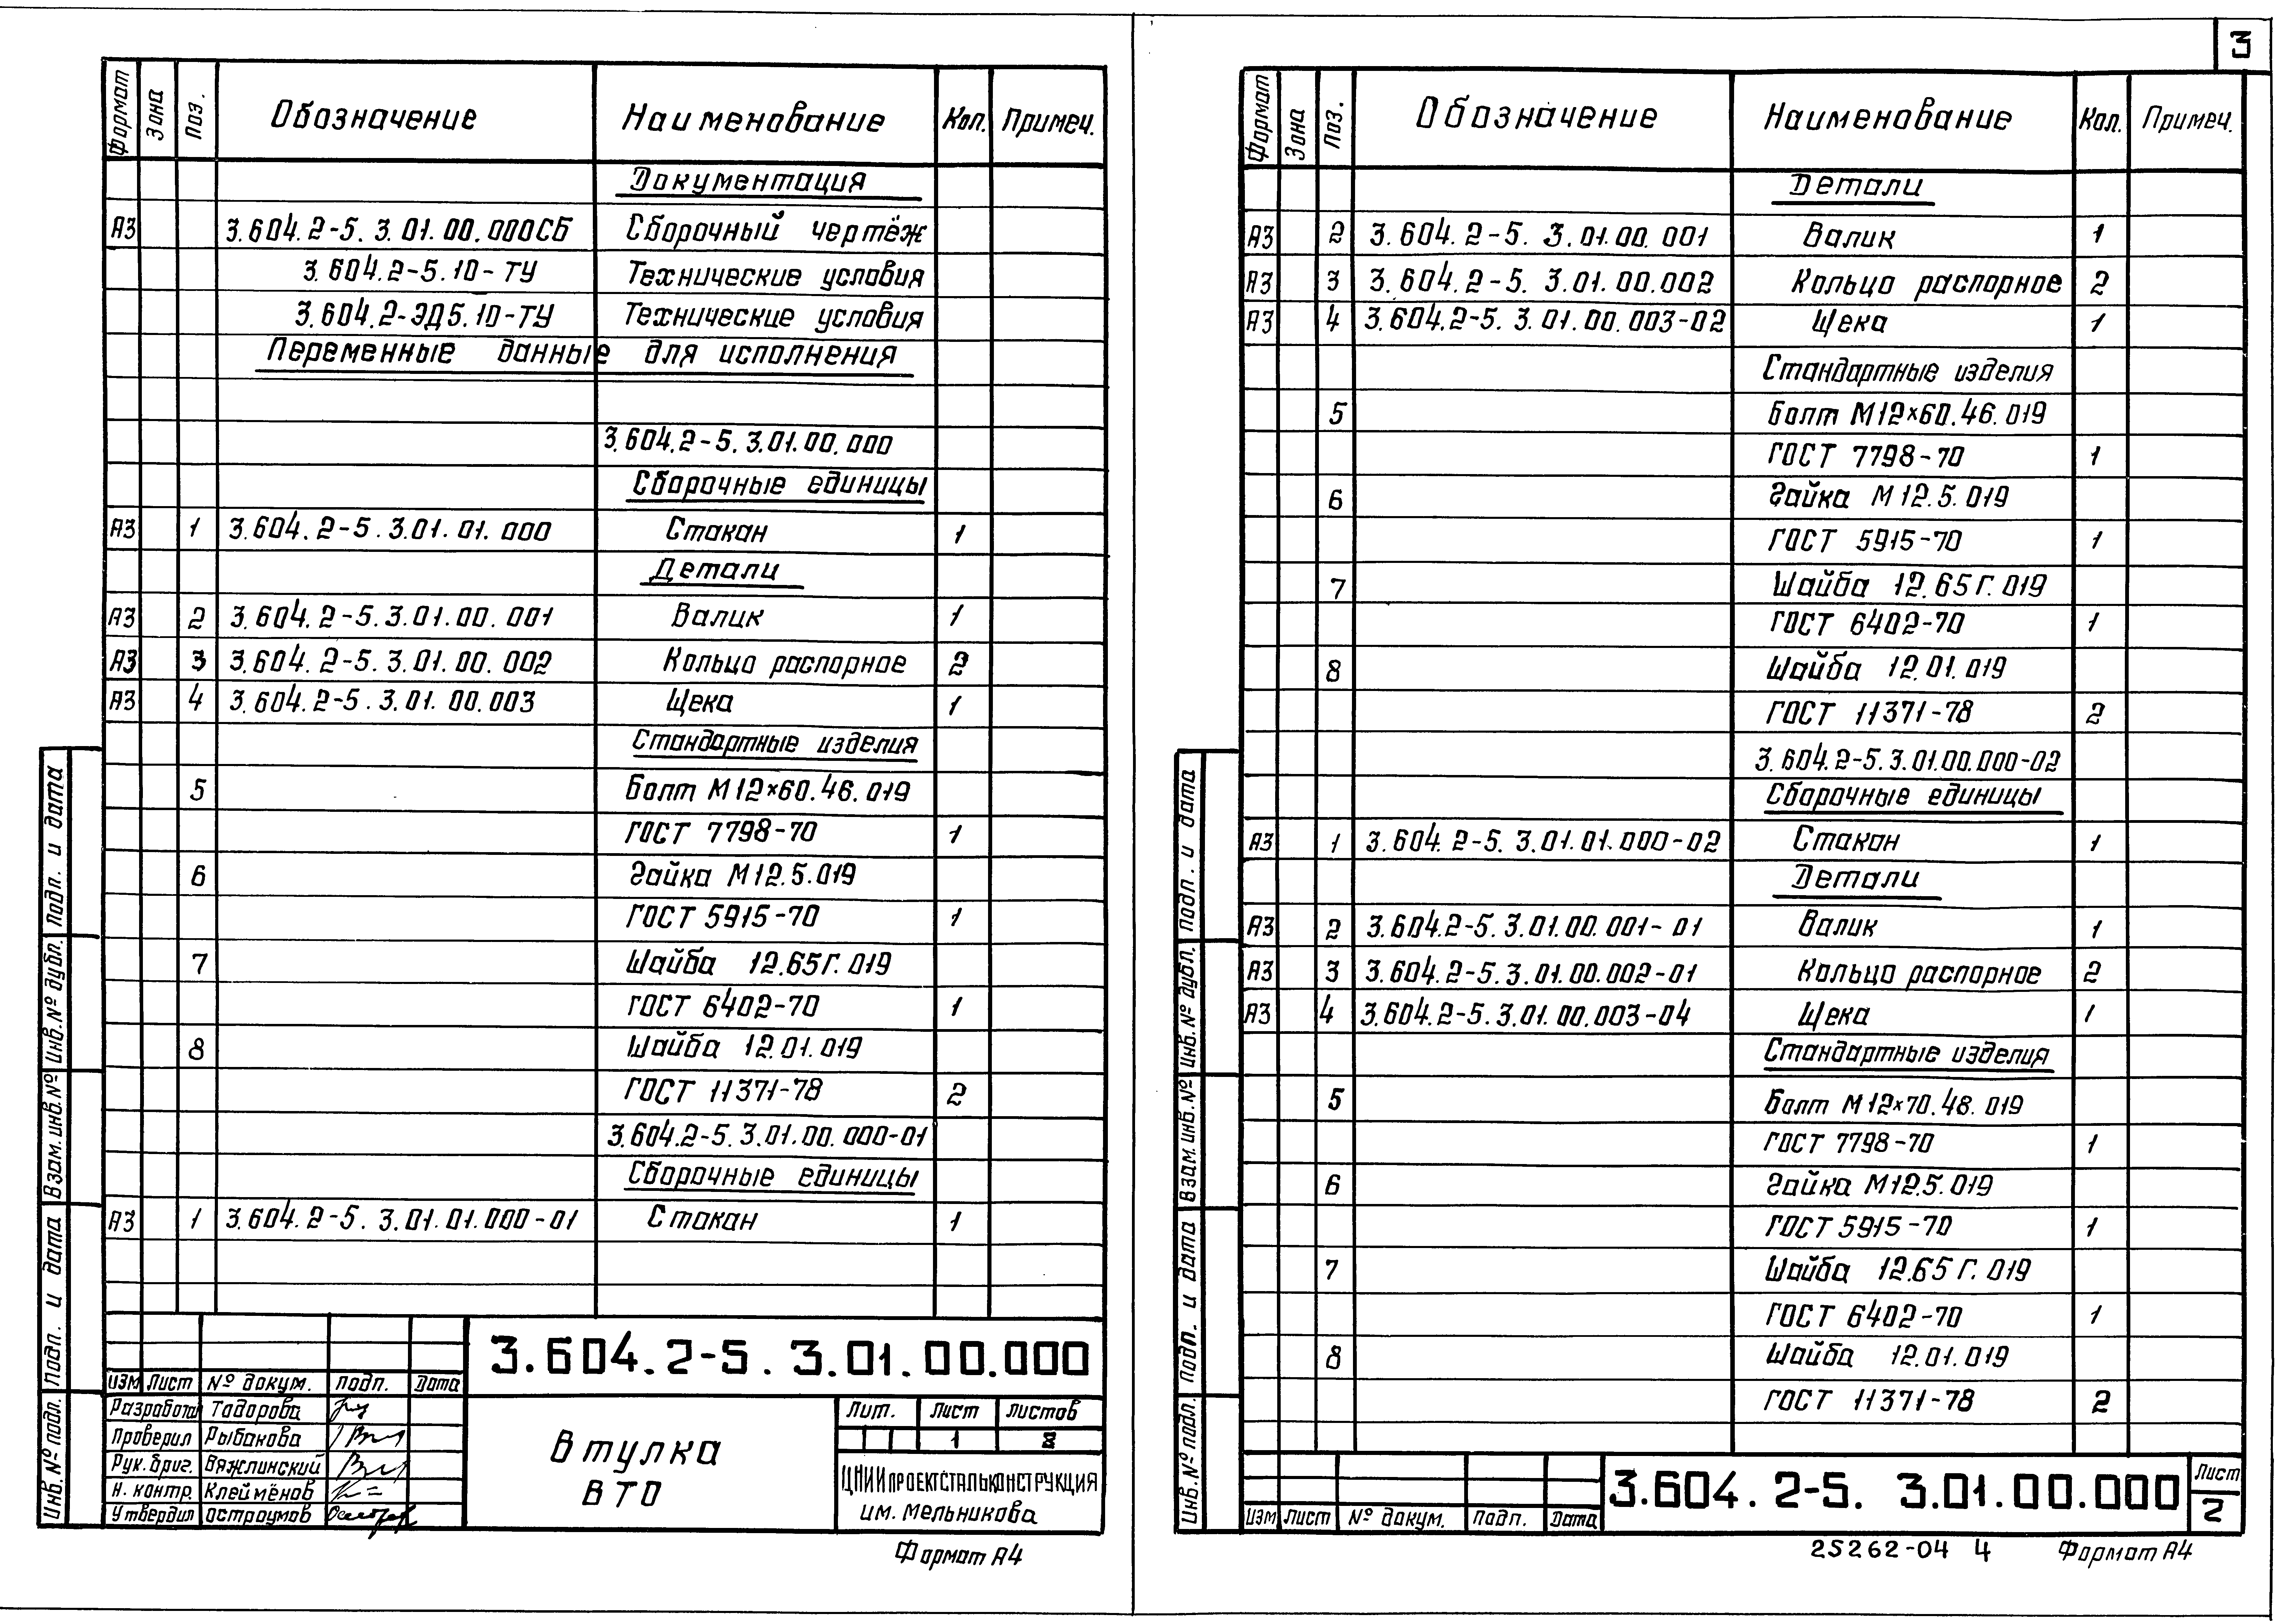 Формат Зона Поз. Обозначение Наименование Кол. Примеч.
Документация
А3 3.604.2-5.3.01.00.000СБ Сборочный чертёж
3.604.2-5.10-ТУ Технические условия
3.604.2-ЭД5.10-ТУ Технические условия
Переменные данные для исполнения
3.604.2-5.3.01.00.000
Сборочные единицы
А3 1 3.604.2-5.3.01.01.000 Стакан 1
Детали
А3 2 3.604.2-5.3.01.00.001 Валик 1
А3 3 3.604.2-5.3.01.00.002 Кольцо распорное 2
А3 4 3.604.2-5.3.01.00.003 Щека 1
Стандартные изделия
5 Болт М12×60.46.019
ГОСТ 7798-70 1
6 Гайка М12.5.019
ГОСТ 5915-70 1
7 Шайба 12.65Г.019
ГОСТ 6402-70 1
8 Шайба 12.01.019
ГОСТ 11371-78 2
3.604.2-5.3.01.00.000-01
Сборочные единицы
А3 1 3.604.2-5.3.01.01.000-01 Стакан 1
Инв.№ подл. Подп. и дата Взам.инв.№ Инв.№ дубл. Подп. и дата
3.604.2-5.3.01.00.000
Изм Лист № докум. Подп. Дата
Разработал Тодорова
Проверил Рыбакова
Рук.бриг. Вяжлинский
Н. контр. Клеймёнов
Утвердил Остроумов
Втулка
ВТО
Лит. Лист Листов
1
ЦНИИПРОЕКТСТАЛЬКОНСТРУКЦИЯ
им. Мельникова
Формат А4
3
Формат Зона Поз. Обозначение Наименование Кол. Примеч.
Детали
А3 2 3.604.2-5.3.01.00.001 Валик 1
А3 3 3.604.2-5.3.01.00.002 Кольцо распорное 2
А3 4 3.604.2-5.3.01.00.003-02 Щека 1
Стандартные изделия
5 Болт М12×60.46.019
ГОСТ 7798-70 1
6 Гайка М12.5.019
ГОСТ 5915-70 1
7 Шайба 12.65Г.019
ГОСТ 6402-70 1
8 Шайба 12.01.019
ГОСТ 11371-78 2
3.604.2-5.3.01.00.000-02
Сборочные единицы
А3 1 3.604.2-5.3.01.01.000-02 Стакан 1
Детали
А3 2 3.604.2-5.3.01.00.001-01 Валик 1
А3 3 3.604.2-5.3.01.00.002-01 Кольцо распорное 2
А3 4 3.604.2-5.3.01.00.003-04 Щека 1
Стандартные изделия
5 Болт М12×70.48.019
ГОСТ 7798-70 1
6 Гайка М12.5.019
ГОСТ 5915-70 1
7 Шайба 12.65Г.019
ГОСТ 6402-70 1
8 Шайба 12.01.019
ГОСТ 11371-78 2
Инв.№ подл. Подп. и дата Взам.инв.№ Инв.№ дубл. Подп. и дата
Изм Лист № докум. Подп. Дата
3.604.2-5.3.01.00.000
Лист
2
25262-04 4 Формат А4